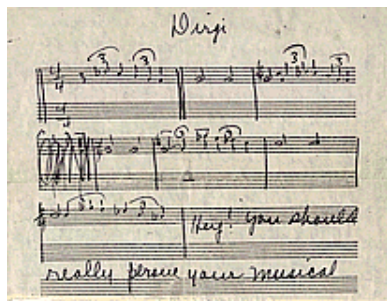 Dirgi
4 3 3 3
4
3
3
Hey! you should
really persue your musical